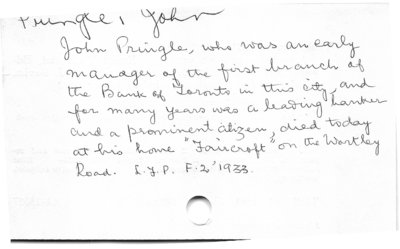 Pringle, John
John Pringle, who was an early
manager of the first branch of
the Bank of Toronto in this city, and
for many years was a leading banker
and a prominent citizen, died today
at his home "Faircroft" on the Wortley
Road. L.F.P. F. 2 '1933.